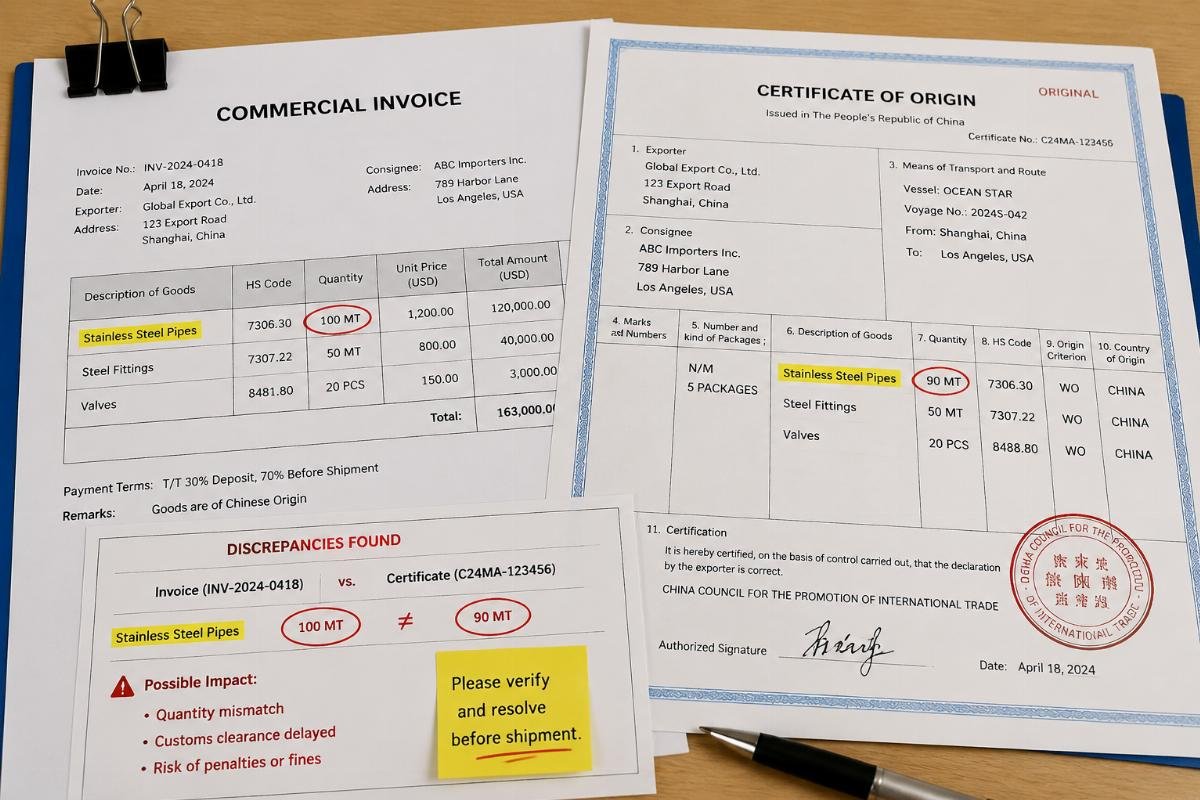 COMMERCIAL INVOICE
Invoice No.: INV-2024-0418
Date: April 18, 2024
Exporter: Global Export Co., Ltd.
Address: 123 Export Road
Shanghai, China
Consignee: ABC Importers Inc.
Address: 789 Harbor Lane
Los Angeles, USA
Description of Goods HS Code Quantity Unit Price (USD) Total Amount (USD)
Stainless Steel Pipes 7306.30 100 MT 1,200.00 120,000.00
Steel Fittings 7307.22 50 MT 800.00 40,000.00
Valves 8481.80 20 PCS 150.00 3,000.00
Total: 163,000.0
Payment Terms: T/T 30% Deposit, 70% Before Shipment
Remarks: Goods are of Chinese Origin
CERTIFICATE OF ORIGIN
ORIGINAL
Issued in The People's Republic of China
Certificate No.: C24MA-123456
1. Exporter
Global Export Co., Ltd.
123 Export Road
Shanghai, China
2. Consignee
ABC Importers Inc.
789 Harbor Lane
Los Angeles, USA
3. Means of Transport and Route
Vessel: OCEAN STAR
Voyage No.: 2024S-042
From: Shanghai, China
To: Los Angeles, USA
4. Marks and Numbers 5. Number and kind of Packages ; 6. Description of Goods 7. Quantity 8. HS Code 9. Origin Criterion 10. Country of Origin
N/M
5 PACKAGES
Stainless Steel Pipes 90 MT 7306.30 WO CHINA
Steel Fittings 50 MT 7307.22 WO CHINA
Valves 20 PCS 8488.80 WO CHINA
11. Certification
It is hereby certified, on the basis of control carried out, that the declaration
by the exporter is correct.
CHINA COUNCIL FOR THE PROMOTION OF INTERNATIONAL TRADE
COUNCIL FOR THE
OF
Authorized Signature
Date: April 18, 2024
DISCREPANCIES FOUND
Invoice (INV-2024-0418) vs. Certificate (C24MA-123456)
Stainless Steel Pipes 100 MT ≠ 90 MT
Possible Impact:
• Quantity mismatch
• Customs clearance delayed
• Risk of penalties or fines
Please verify
and resolve
before shipment.